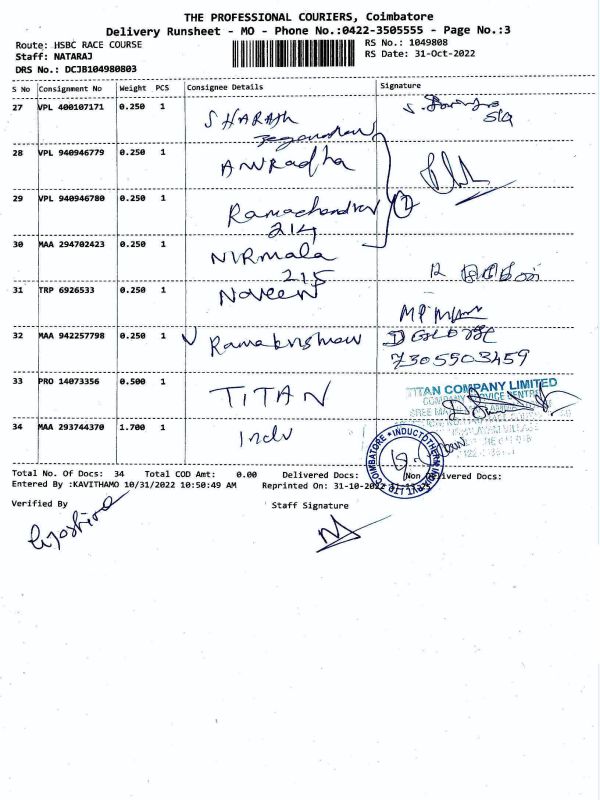 THE PROFESSIONAL COURIERS, Coimbatore
Delivery Runsheet - MO - Phone No.:0422-3505555 - Page No.:3
Route: HSBC RACE COURSE
RS No.: 1049808
Staff: NATARAJ
RS Date: 31-Oct-2022
DRS No.: DCJB104980803
S No Consignment No Weight PCS Consignee Details Signature
27 VPL 400107171 0.250 1 SHARATH
28 VPL 940946779 0.250 1 ANURadha
29 VPL 940946780 0.250 1 Ramachandran
214
30 MAA 294702423 0.250 1 NIRmala
215
31 TRP 6926533 0.250 1 NAveen
32 MAA 942257798 0.250 1 Ramakrishnan
7305903459
33 PRO 14073356 0.500 1 TITAN
TITAN COMPANY LIMITED
34 MAA 293744370 1.700 1 Indu
Total No. Of Docs: 34 Total COD Amt: 0.00 Delivered Docs: Non Delivered Docs:
Entered By :KAVITHAMO 10/31/2022 10:50:49 AM Reprinted On: 31-10-2022
Verified By
Staff Signature